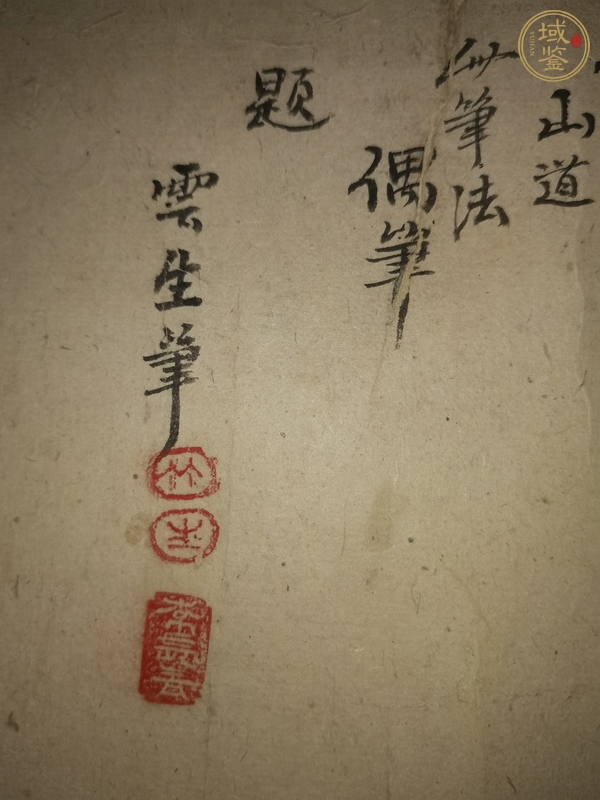 山道
筆法
偶筆
題
雲生筆
竹
生
域鉴